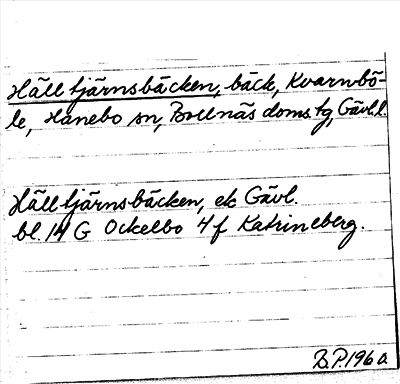 Hälltjärnsbäcken, bäck, Kvarnbö-
le, Hanebo sn, Bollnäs doms. tg, Gävl. l.
Hälltjärnsbäcken, ek Gävl.
bl. 14 G Ockelbo 4 f Katrineberg.
B.P. 1960.